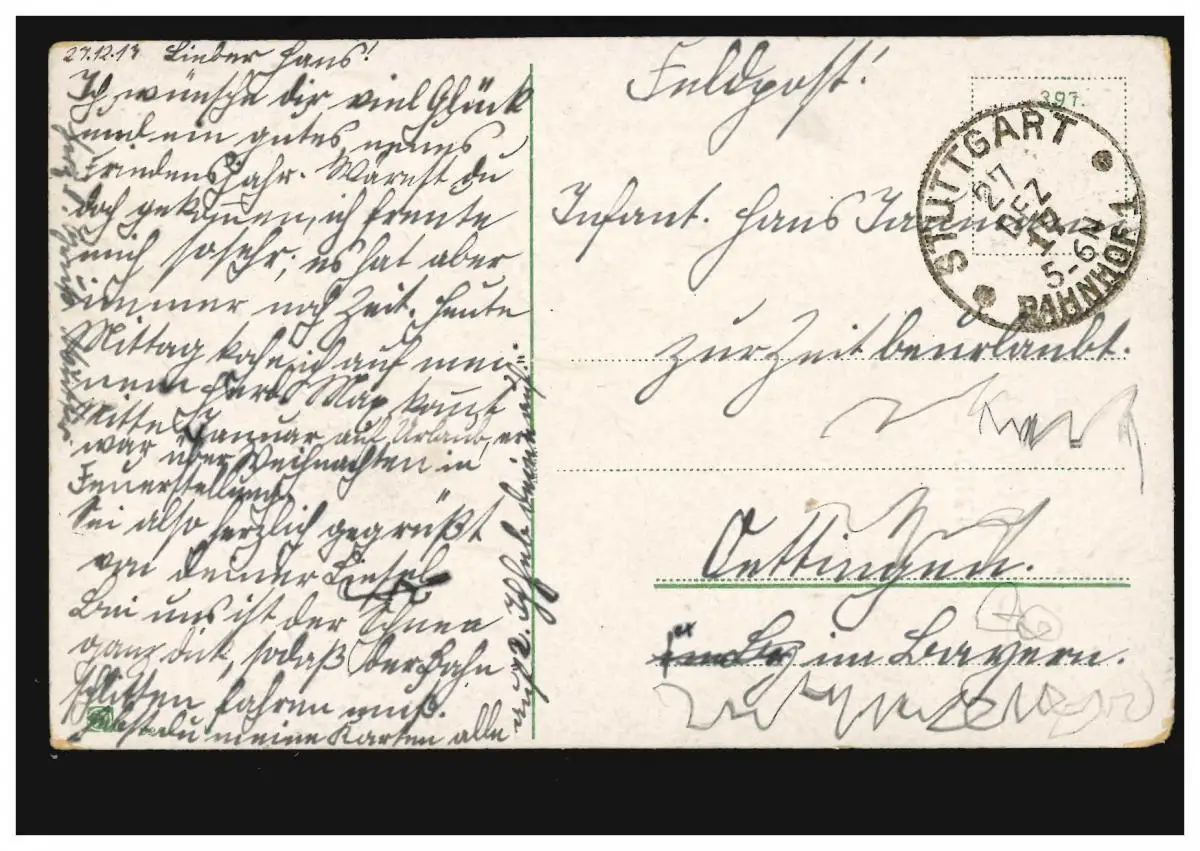 27.12.17 Lieber Hans!
Ich wünsche dir viel Glück
und ein gutes, neues
Friedensjahr. Wärest du
doch gekommen, ich freute
mich sosehr; es hat aber
immer noch Zeit. Heute
Mittag kam ich auf mei-
nem Max kommt
mitte Januar auf Urlaub, er
war über Weihnachten in
Feuerstellung.
Sei also herzlich gegrüßt
von deiner Liesel
Bei uns ist der Schnee
ganz dick, sodaß der Bahn
schlitten fahren muß.
Hast du meine Karten alle
Feldpost!
397.
STUTTGART
27
DEZ
17
5-6N
BAHNHOF 1
Infant. Hans
zur Zeit beurlaubt.
Oettingen.
im Bayern.